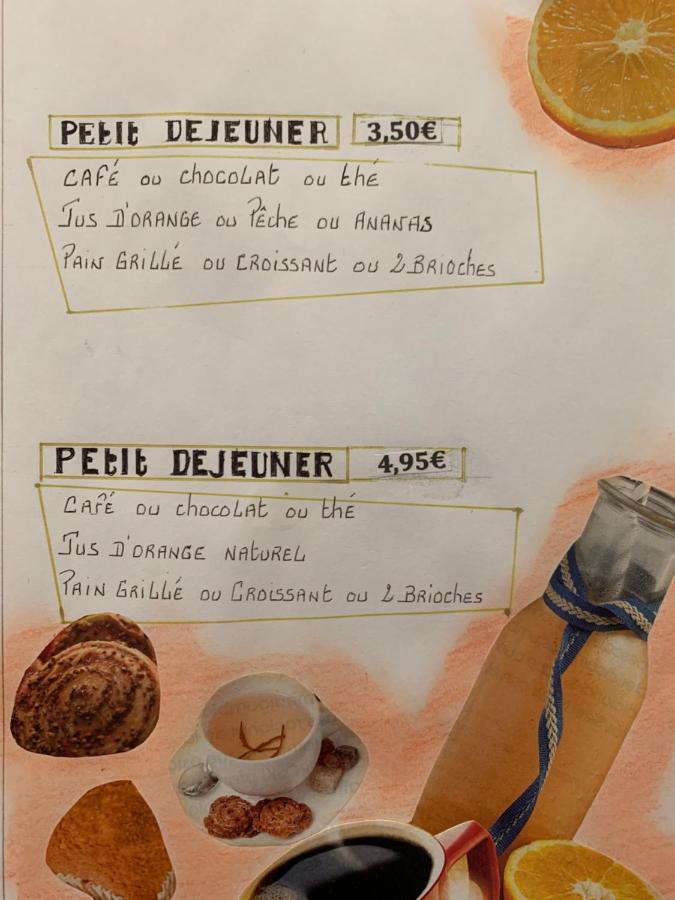 PEtit DEJEUNER 3,50€
CAFÉ ou chocoLAt ou thé
Jus D'ORANGE ou Pêche ou ANANAS
PAIN GRILLÉ ou CROISSANT ou 2 BRIOCHES
PEtit DEJEUNER 4,95€
CAFÉ ou chocoLat ou thé
Jus D'ORANGE NATUREL
PAIN GRILLÉ ou CROISSANT ou 2 BRIOCHES